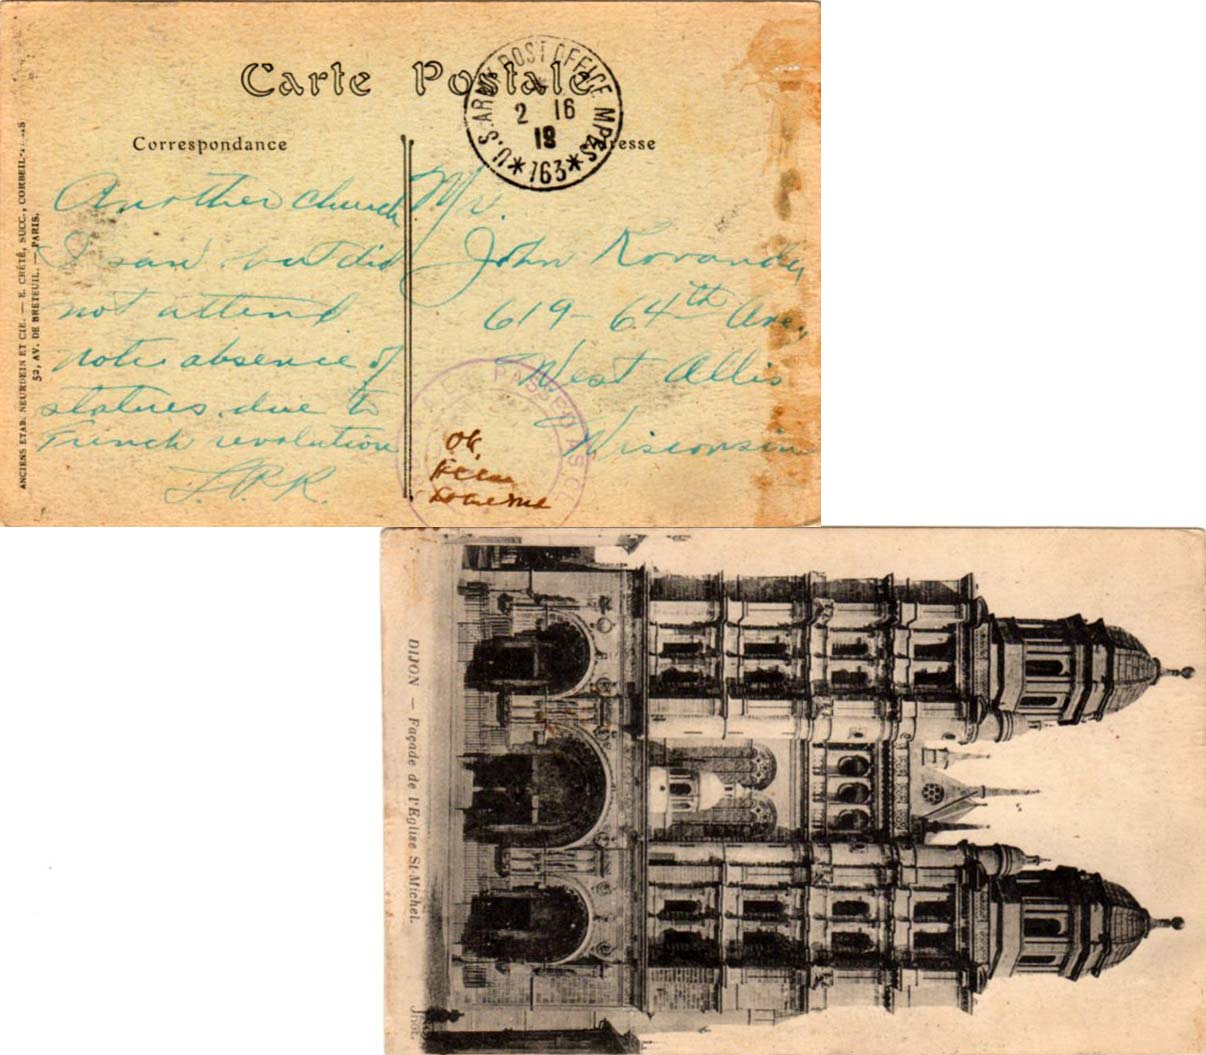 Carte Postale
Correspondance
Adresse
U.S. ARMY POST OFFICE MPES
2 16
19
*763*
ANCIENS ETAB. NEURDEIN ET CIE. — E. CRÉTÉ, SUCC., CORBEIL-
52, AV. DE BRETEUIL. — PARIS.
Another church
I saw but did
not attend
note absence of
statues due to
French revolution
L.R.R.
Mr.
John Kovanda
619 - 64th Ave.
West Allis
Wisconsin
A.E.F. PASSED AS CE
OK
DIJON — Façade de l'Eglise St-Michel.